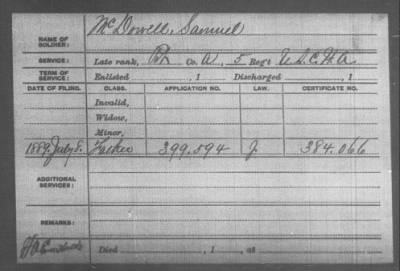 NAME OF SOLDIER: McDowell, Samuel
SERVICE: Late rank, Pvt Co. A, 5 Reg't U.S.C.H.A
TERM OF SERVICE: Enlisted , 1 Discharged , 1
DATE OF FILING. CLASS. APPLICATION NO. LAW. CERTIFICATE NO.
Invalid,
Widow,
Minor,
1889, July 8. Father 399.594 J 384.066
ADDITIONAL SERVICES:
REMARKS:
Died , 1 , at